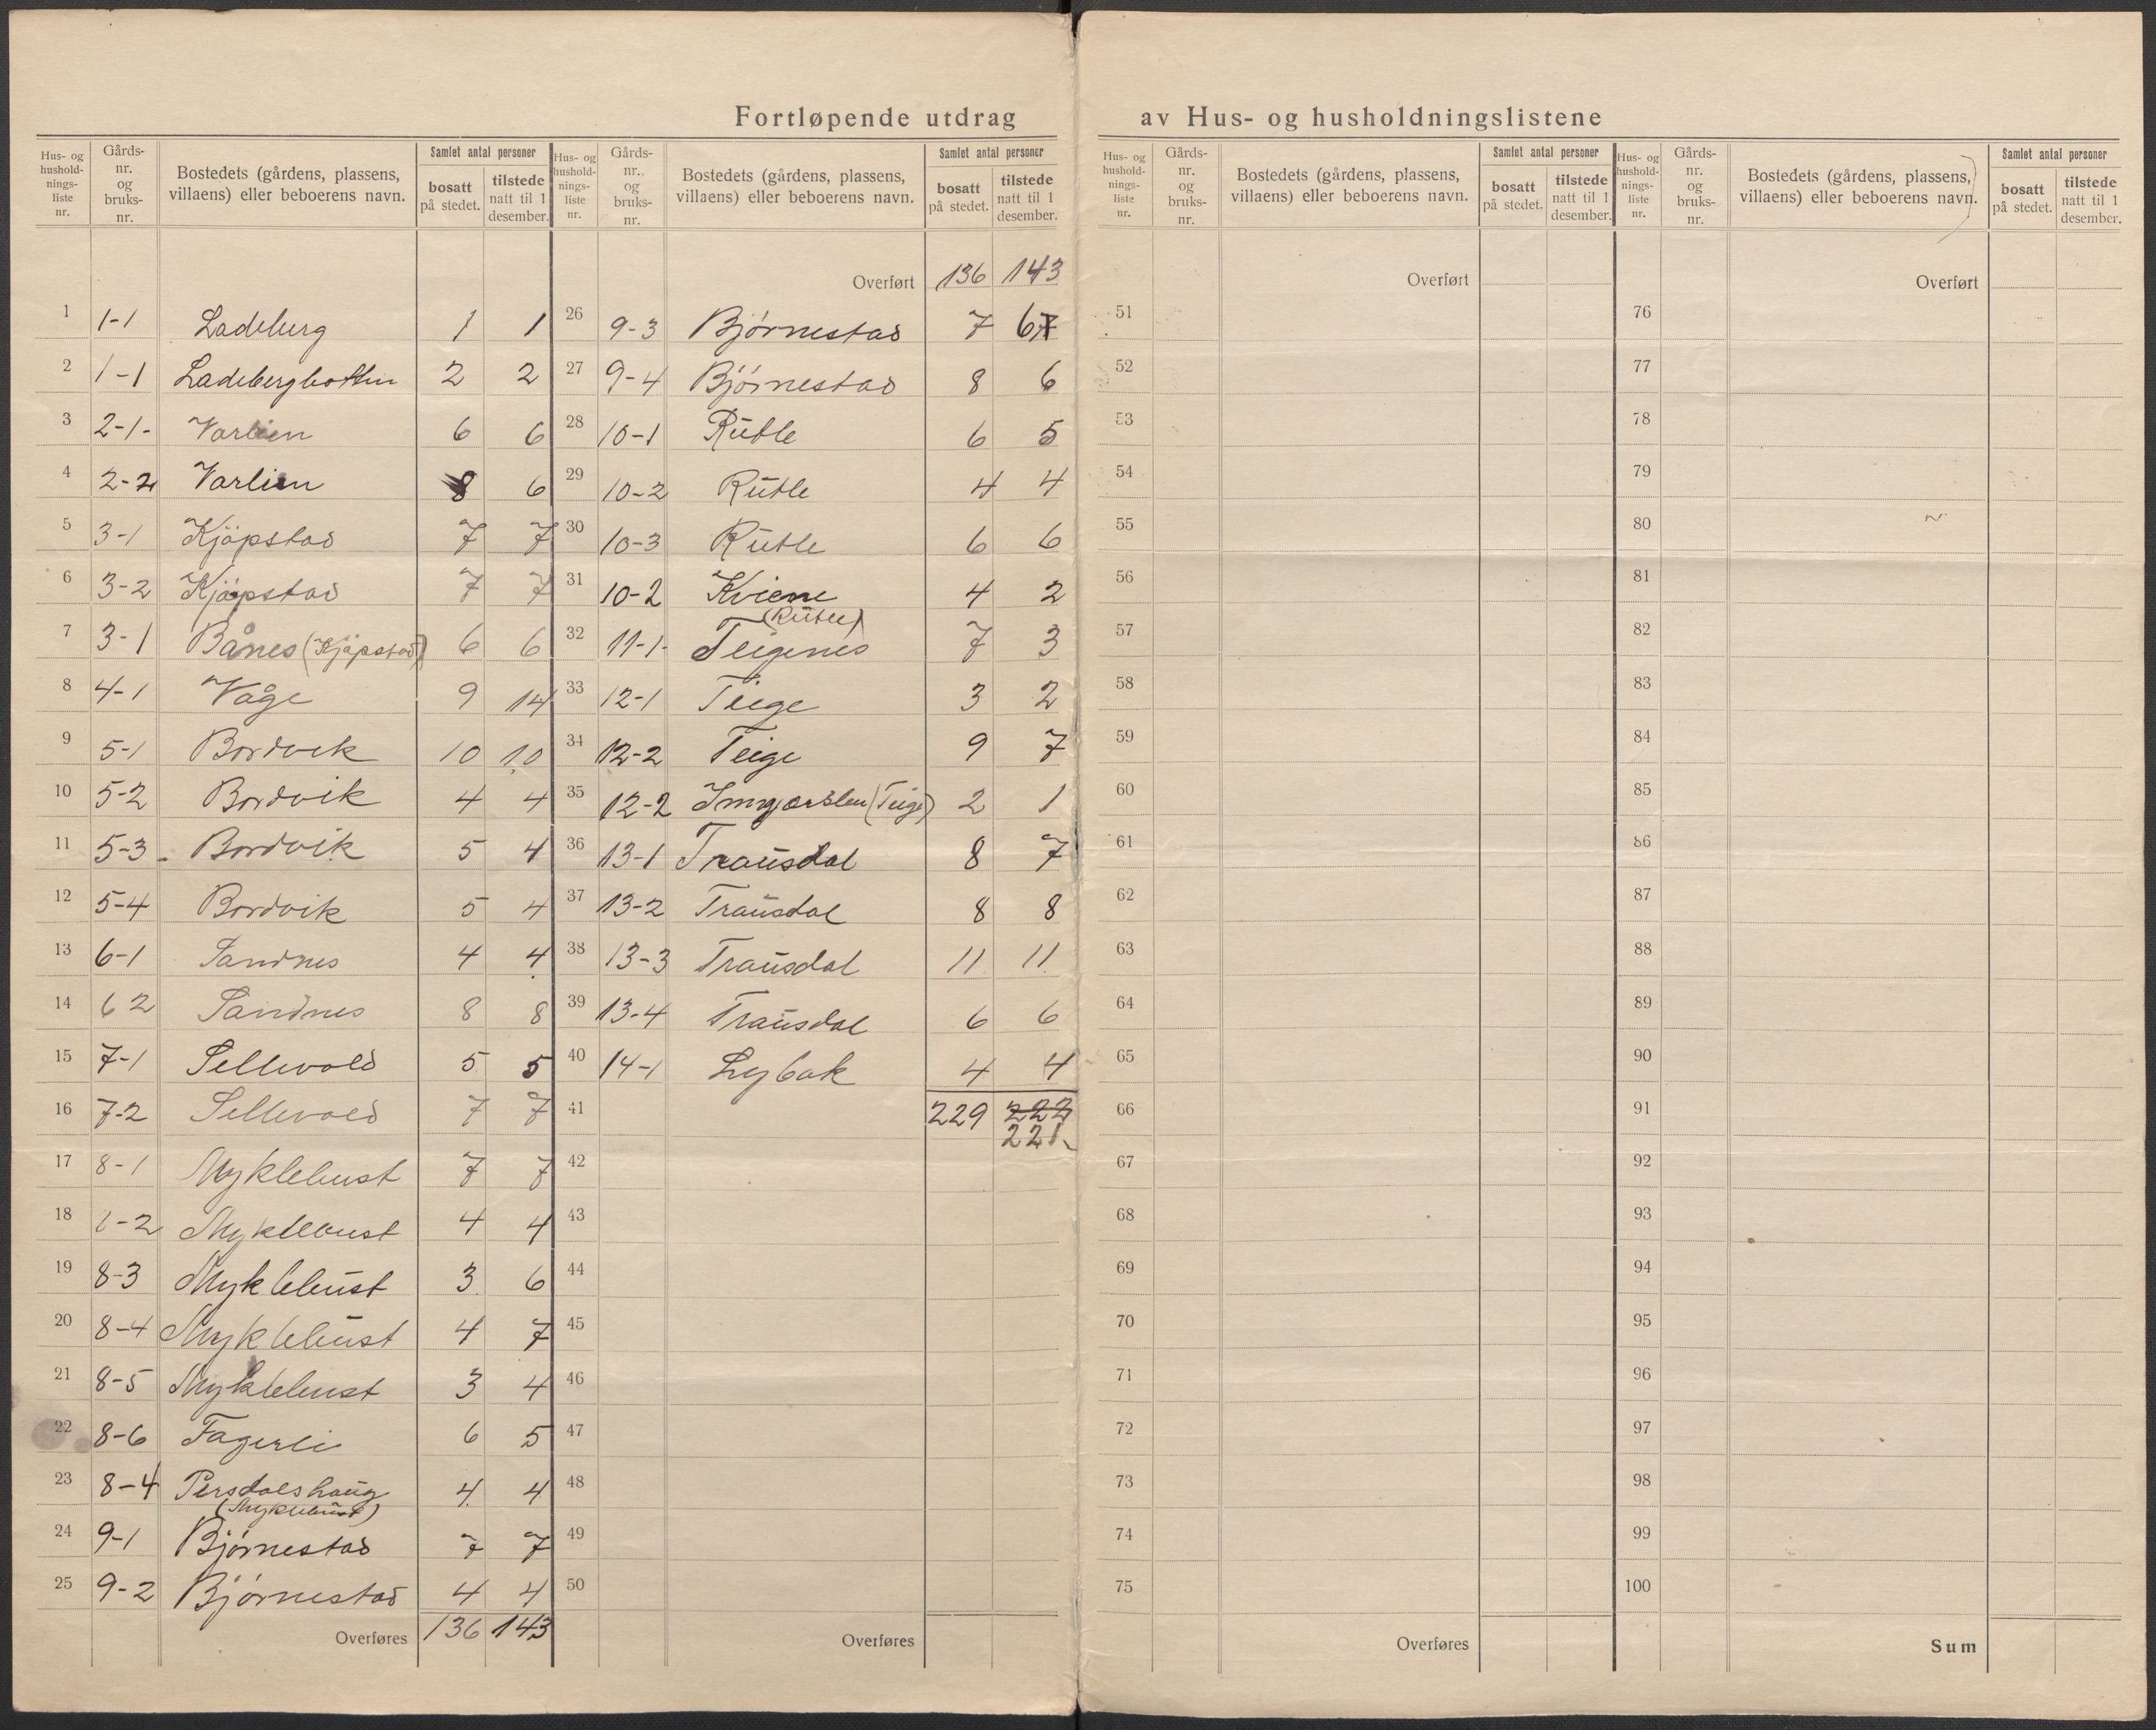 Fortløpende utdrag av Hus- og husholdningslistene
Hus- og hushold-nings-liste nr. | Gårds-nr. og bruks-nr. | Bostedets (gårdens, plassens, villaens) eller beboerens navn. | Samlet antal personer | bosatt på stedet. | tilstede natt til 1 desember.
1 1-1 Ladeberg 1 1
2 1-1 Ladebergbotten 2 2
3 2-1- Varlien 6 6
4 2-2 Varlien 8 6
5 3-1 Kjøpstad 7 7
6 3-2 Kjøpstad 7 7
7 3-1 Bånes (Kjøpstad) 6 6
8 4-1 Våge 9 14
9 5-1 Bordvik 10 10
10 5-2 Bordvik 4 4
11 5-3- Bordvik 5 4
12 5-4 Bordvik 5 4
13 6-1 Sandnes 4 4
14 6 2 Sandnes 8 8
15 7-1 Sellevold 5 5
16 7-2 Sellevold 7 7
17 8-1 Myklebust 7 7
18 8-2 Myklebust 4 4
19 8-3 Myklebust 3 6
20 8-4 Myklebust 4 7
21 8-5 Myklebust 3 4
22 8-6 Fagerli 6 5
23 8-4 Persdalshaug 4 4
(Myklebust)
24 9-1 Bjørnestad 7 7
25 9-2 Bjørnestad 4 4
Overføres 136 143
Hus- og hushold-nings-liste nr. | Gårds-nr. og bruks-nr. | Bostedets (gårdens, plassens, villaens) eller beboerens navn. | Samlet antal personer | bosatt på stedet. | tilstede natt til 1 desember.
Overført 136 143
26 9-3 Bjørnestad 7 6 7
27 9-4 Bjørnestad 8 6
28 10-1 Rutle 6 5
29 10-2 Rutle 4 4
30 10-3 Rutle 6 6
31 10-2 Kviene 4 2
(Rutle)
32 11-1- Teigenes 7 3
33 12-1 Teige 3 2
34 12-2 Teige 9 7
35 12-2 (Teige) 2 1
36 13-1 Trausdal 8 7
37 13-2 Trausdal 8 8
38 13-3 Trausdal 11 11
39 13-4 Trausdal 6 6
40 14-1 Lybak 4 4
41 229 222
221
42
43
44
45
46
47
48
49
50
Overføres
Hus- og hushold-nings-liste nr. | Gårds-nr. og bruks-nr. | Bostedets (gårdens, plassens, villaens) eller beboerens navn. | Samlet antal personer | bosatt på stedet. | tilstede natt til 1 desember.
Overført
51
52
53
54
55
56
57
58
59
60
61
62
63
64
65
66
67
68
69
70
71
72
73
74
75
Overføres
Hus- og hushold-nings-liste nr. | Gårds-nr. og bruks-nr. | Bostedets (gårdens, plassens, villaens) eller beboerens navn. | Samlet antal personer | bosatt på stedet. | tilstede natt til 1 desember.
Overført
76
77
78
79
80
81
82
83
84
85
86
87
88
89
90
91
92
93
94
95
96
97
98
99
100
Sum